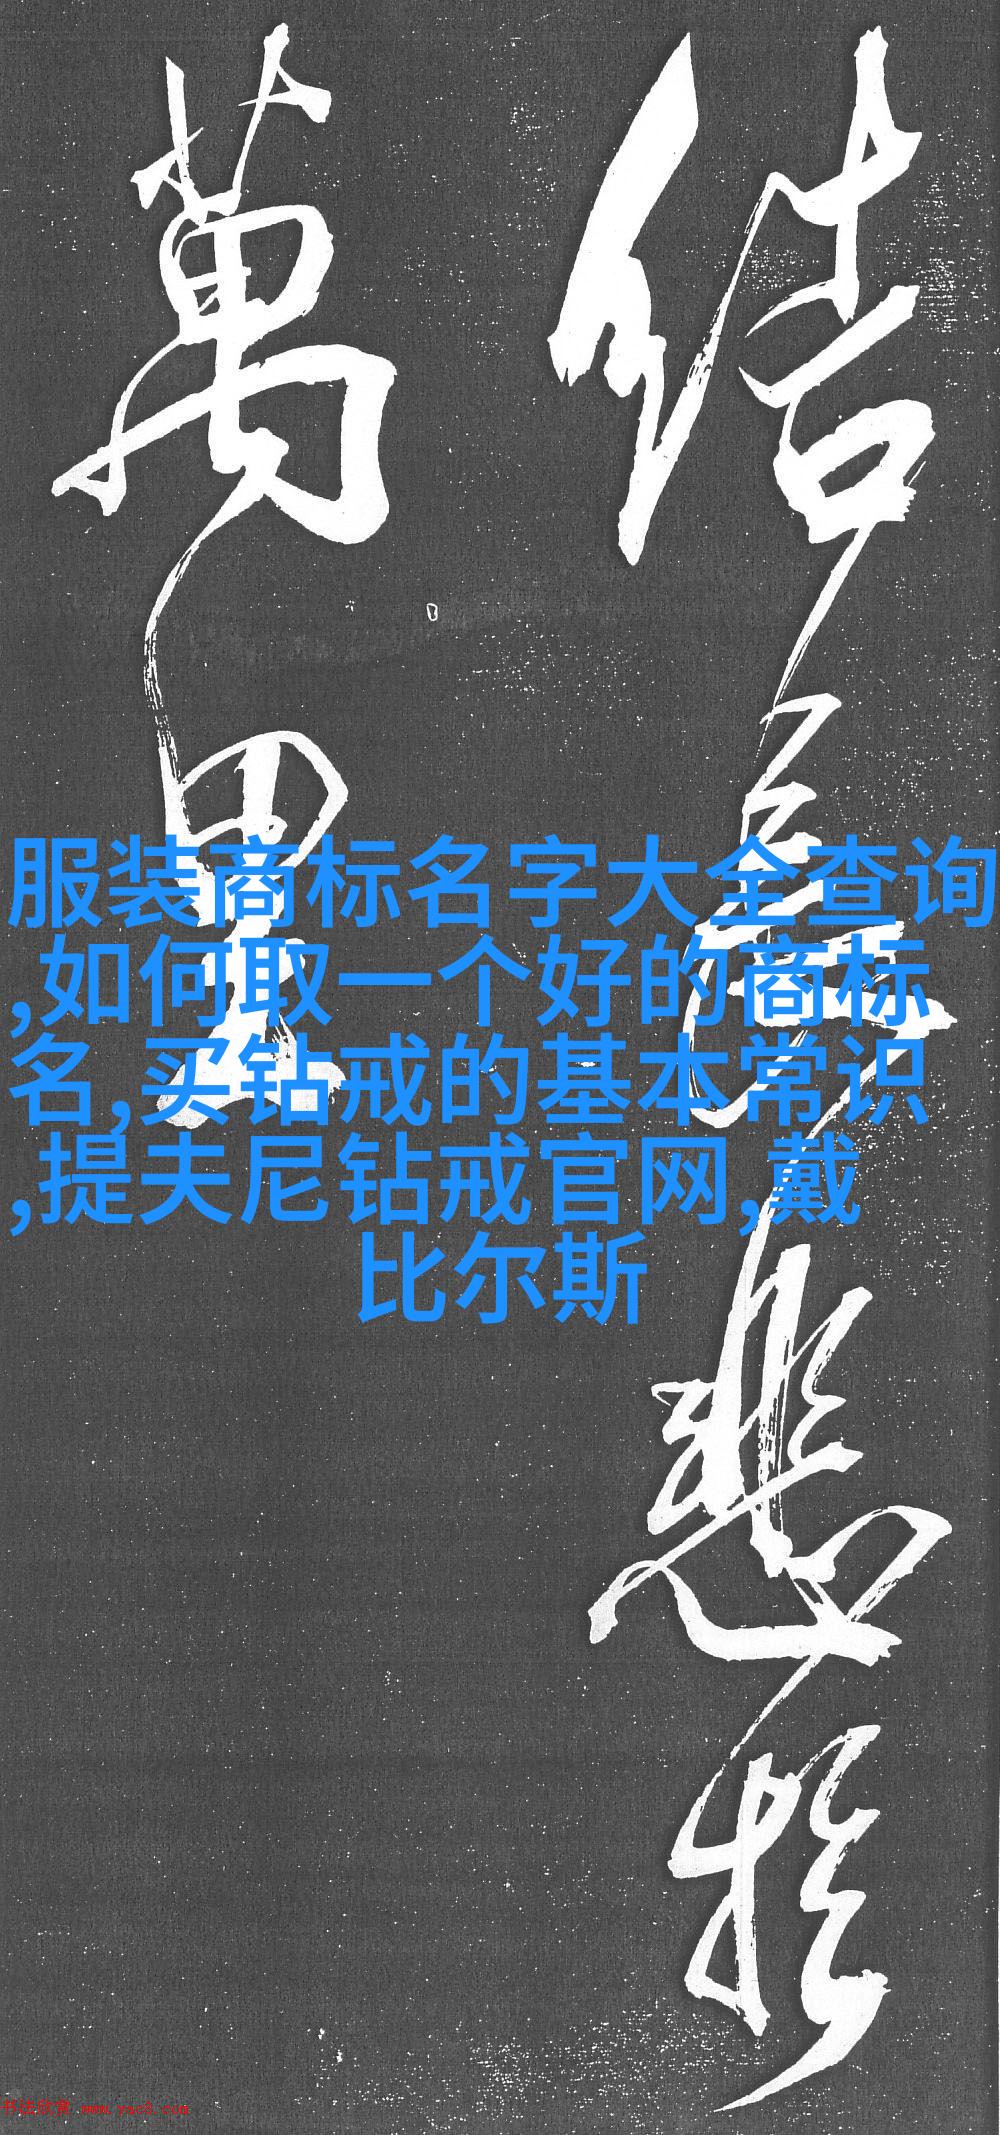 结
悲
于
萬
里
服装商标名字大全查询
,如何取一个好的商标
名,买钻戒的基本常识
,提夫尼钻戒官网,戴
比尔斯
书法欣赏 www.yac8.com